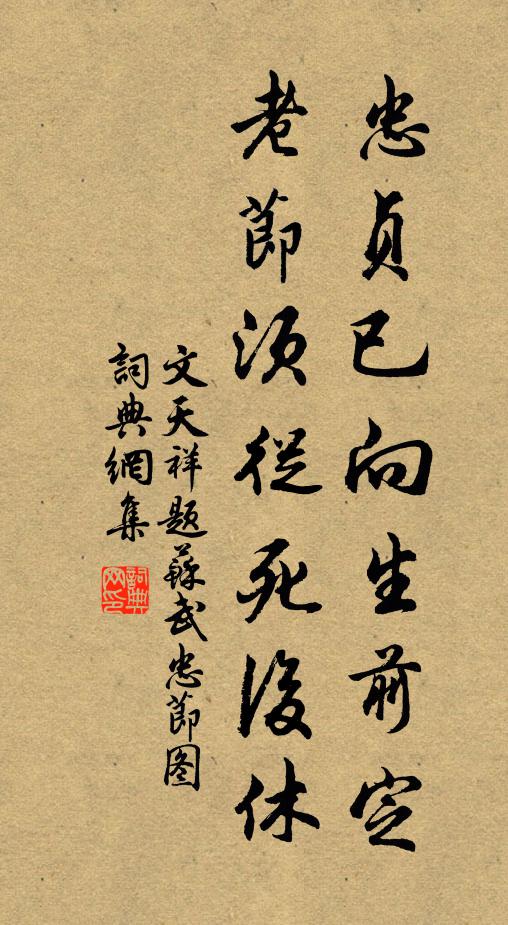 忠貞已向生前定
老節須從死後休
文天祥題蘇武忠節圖
詞典網集
詞典
网印